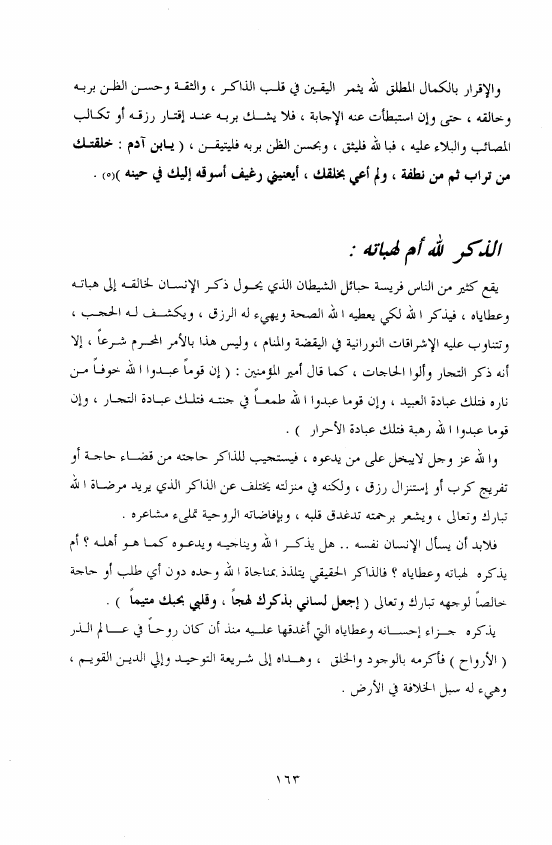 والإقرار بالكمال المطلق لله يثمر اليقين في قلب الذاكر ، والثقة وحسن الظن بربه
وخالقه ، حتى وإن استبطأت عنه الإجابة ، فلا يشك بربه عند إقتار رزقه أو تكالب
المصائب والبلاء عليه ، فبا لله فليثق ، وبحسن الظن بربه فليتيقن ، ( يابن آدم : خلقتك
من تراب ثم من نطفة ، ولم أعي بخلقك ، أيعنيني رغيف أسوقه إليك في حينه )(٥) .
الذكر لله أم لهباته :
يقع كثير من الناس فريسة حبائل الشيطان الذي يحول ذكر الإنسان لخالقه إلى هباته
وعطاياه ، فيذكر الله لكي يعطيه الله الصحة ويهيء له الرزق ، ويكشف له الحجب ،
وتتناوب عليه الإشراقات النورانية في اليقضة والمنام ، وليس هذا بالأمر المحرم شرعاً ، إلا
أنه ذكر التجار وألوا الحاجات ، كما قال أمير المؤمنين : ( إن قوماً عبدوا الله خوفاً من
ناره فتلك عبادة العبيد ، وإن قوما عبدوا الله طمعاً في جنته فتلك عبادة التجار ، وإن
قوما عبدوا الله رهبة فتلك عبادة الأحرار ) .
والله عز وجل لايبخل على من يدعوه ، فيستجيب للذاكر حاجته من قضاء حاجة أو
تفريج كرب أو إستنزال رزق ، ولكنه في منزلته يختلف عن الذاكر الذي يريد مرضاة الله
تبارك وتعالى ، ويشعر برحمته تدغدق قلبه ، وبإفاضاته الروحية تملىء مشاعره .
فلابد أن يسأل الإنسان نفسه .. هل يذكر الله ويناجيه ويدعوه كما هو أهله ؟ أم
يذكره لهباته وعطاياه ؟ فالذاكر الحقيقي يتلذذ بمناجاة الله وحده دون أي طلب أو حاجة
خالصاً لوجهه تبارك وتعالى ( إجعل لساني بذكرك لهجاً ، وقلبي بحبك متيماً ) .
يذكره جزاء إحسانه وعطاياه التي أغدقها عليه منذ أن كان روحاً في عالم الذر
( الأرواح ) فأكرمه بالوجود والخلق ، وهداه إلى شريعة التوحيد وإلي الدين القويم ،
وهيء له سبل الخلافة في الأرض .
١٦٣